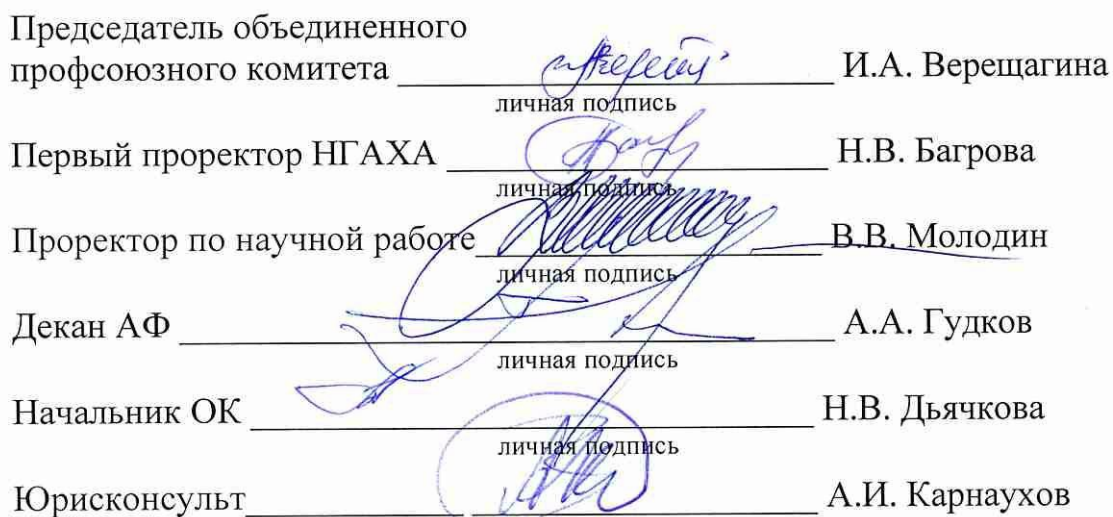 Председатель объединенного
профсоюзного комитета И.А. Верещагина
личная подпись
Первый проректор НГАХА Н.В. Багрова
личная подпись
Проректор по научной работе В.В. Молодин
личная подпись
Декан АФ А.А. Гудков
личная подпись
Начальник ОК Н.В. Дьячкова
личная подпись
Юрисконсульт А.И. Карнаухов